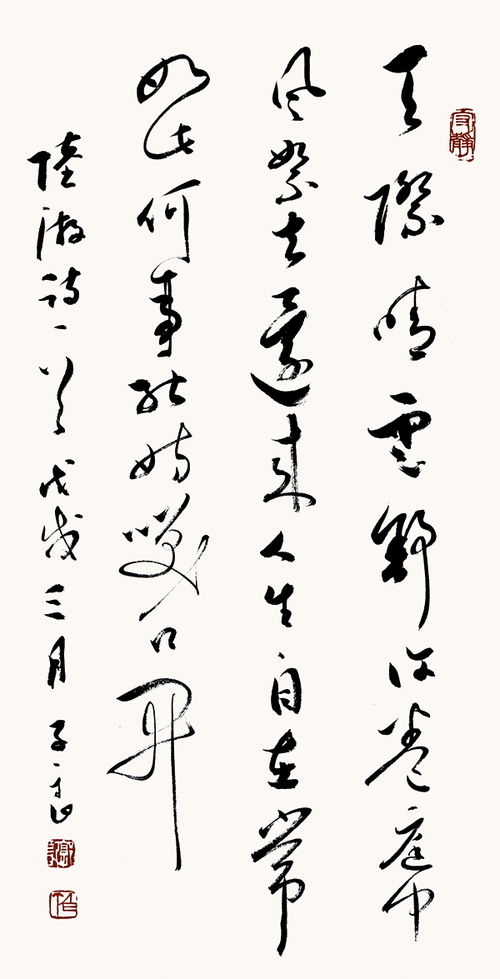 天際晴雲舒復卷庭中
風絮去還來人生自在常
如此何事能妨咲口開
陸游詩一首戊戌三月